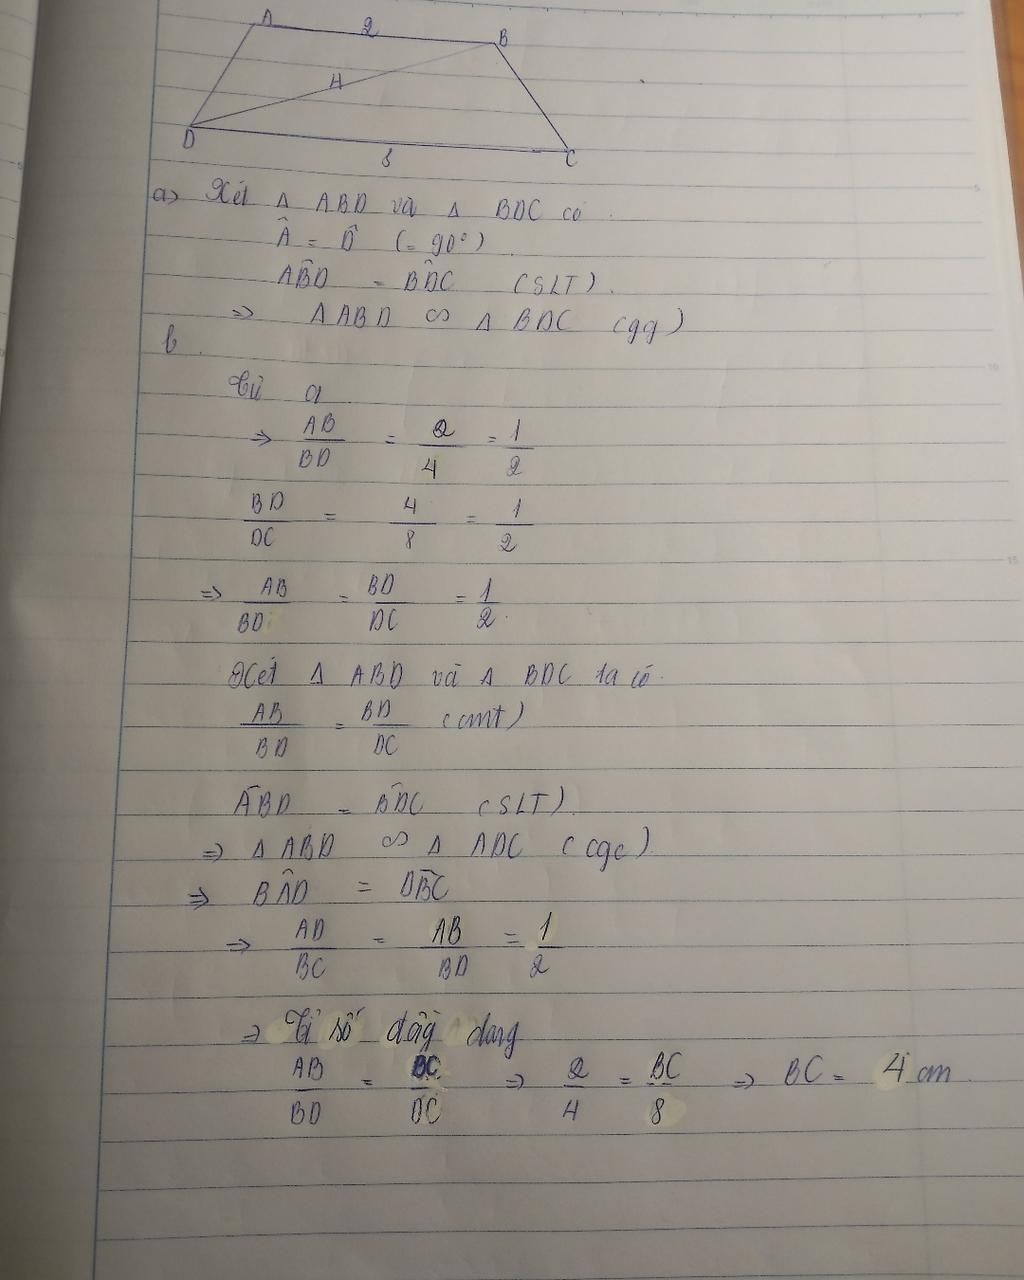 A 2 B
4
D 8 C
a) Xét Δ ABD và Δ BDC có
Â = D̂ (= 90°)
AB̂D = BD̂C (SLT).
=> Δ ABD ∽ Δ BDC (gg)
b
Từ a
=> AB/BD = 2/4 = 1/2
BD/DC = 4/8 = 1/2
=> AB/BD = BD/DC = 1/2.
Xét Δ ABD và Δ BDC ta có
AB/BD = BD/DC (cmt)
AB̂D = BD̂C (SLT)
=> Δ ABD ∽ Δ ADC (cgc)
=> BÂD = DB̂C
=> AD/BC = AB/BD = 1/2
=> Tỉ số đồng dạng
AB/BD = BC/DC => 2/4 = BC/8 => BC = 4 cm